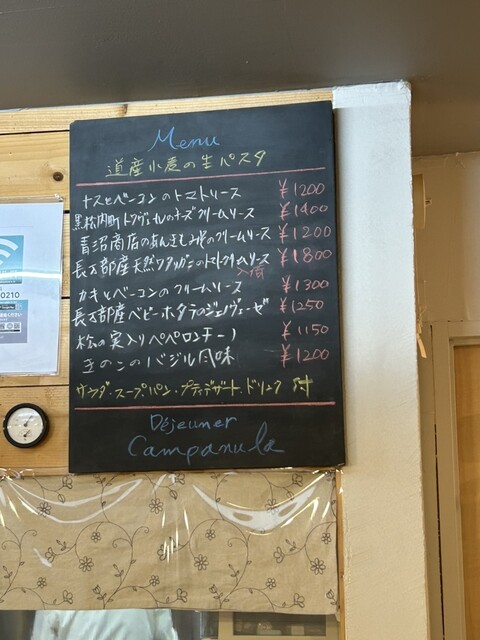 Menu
道産小麦の生パスタ
ナスとベーコンのトマトソース ¥1200
黒松内町 トワ・ヴェールのチーズクリームソース ¥1400
青沼商店のあんきも みそのクリームソース ¥1200
長万部産天然ワタリガニのトマトクリームソース ¥1800
入荷
カキとベーコンのクリームソース ¥1300
長万部産ベビーホタテのジェノヴェーゼ ¥1250
松の実入りペペロンチーノ ¥1150
きのこのバジル風味 ¥1200
サラダ・スープ・パン・プティデザート・ドリンク 付
Déjeuner
Campanula
0210